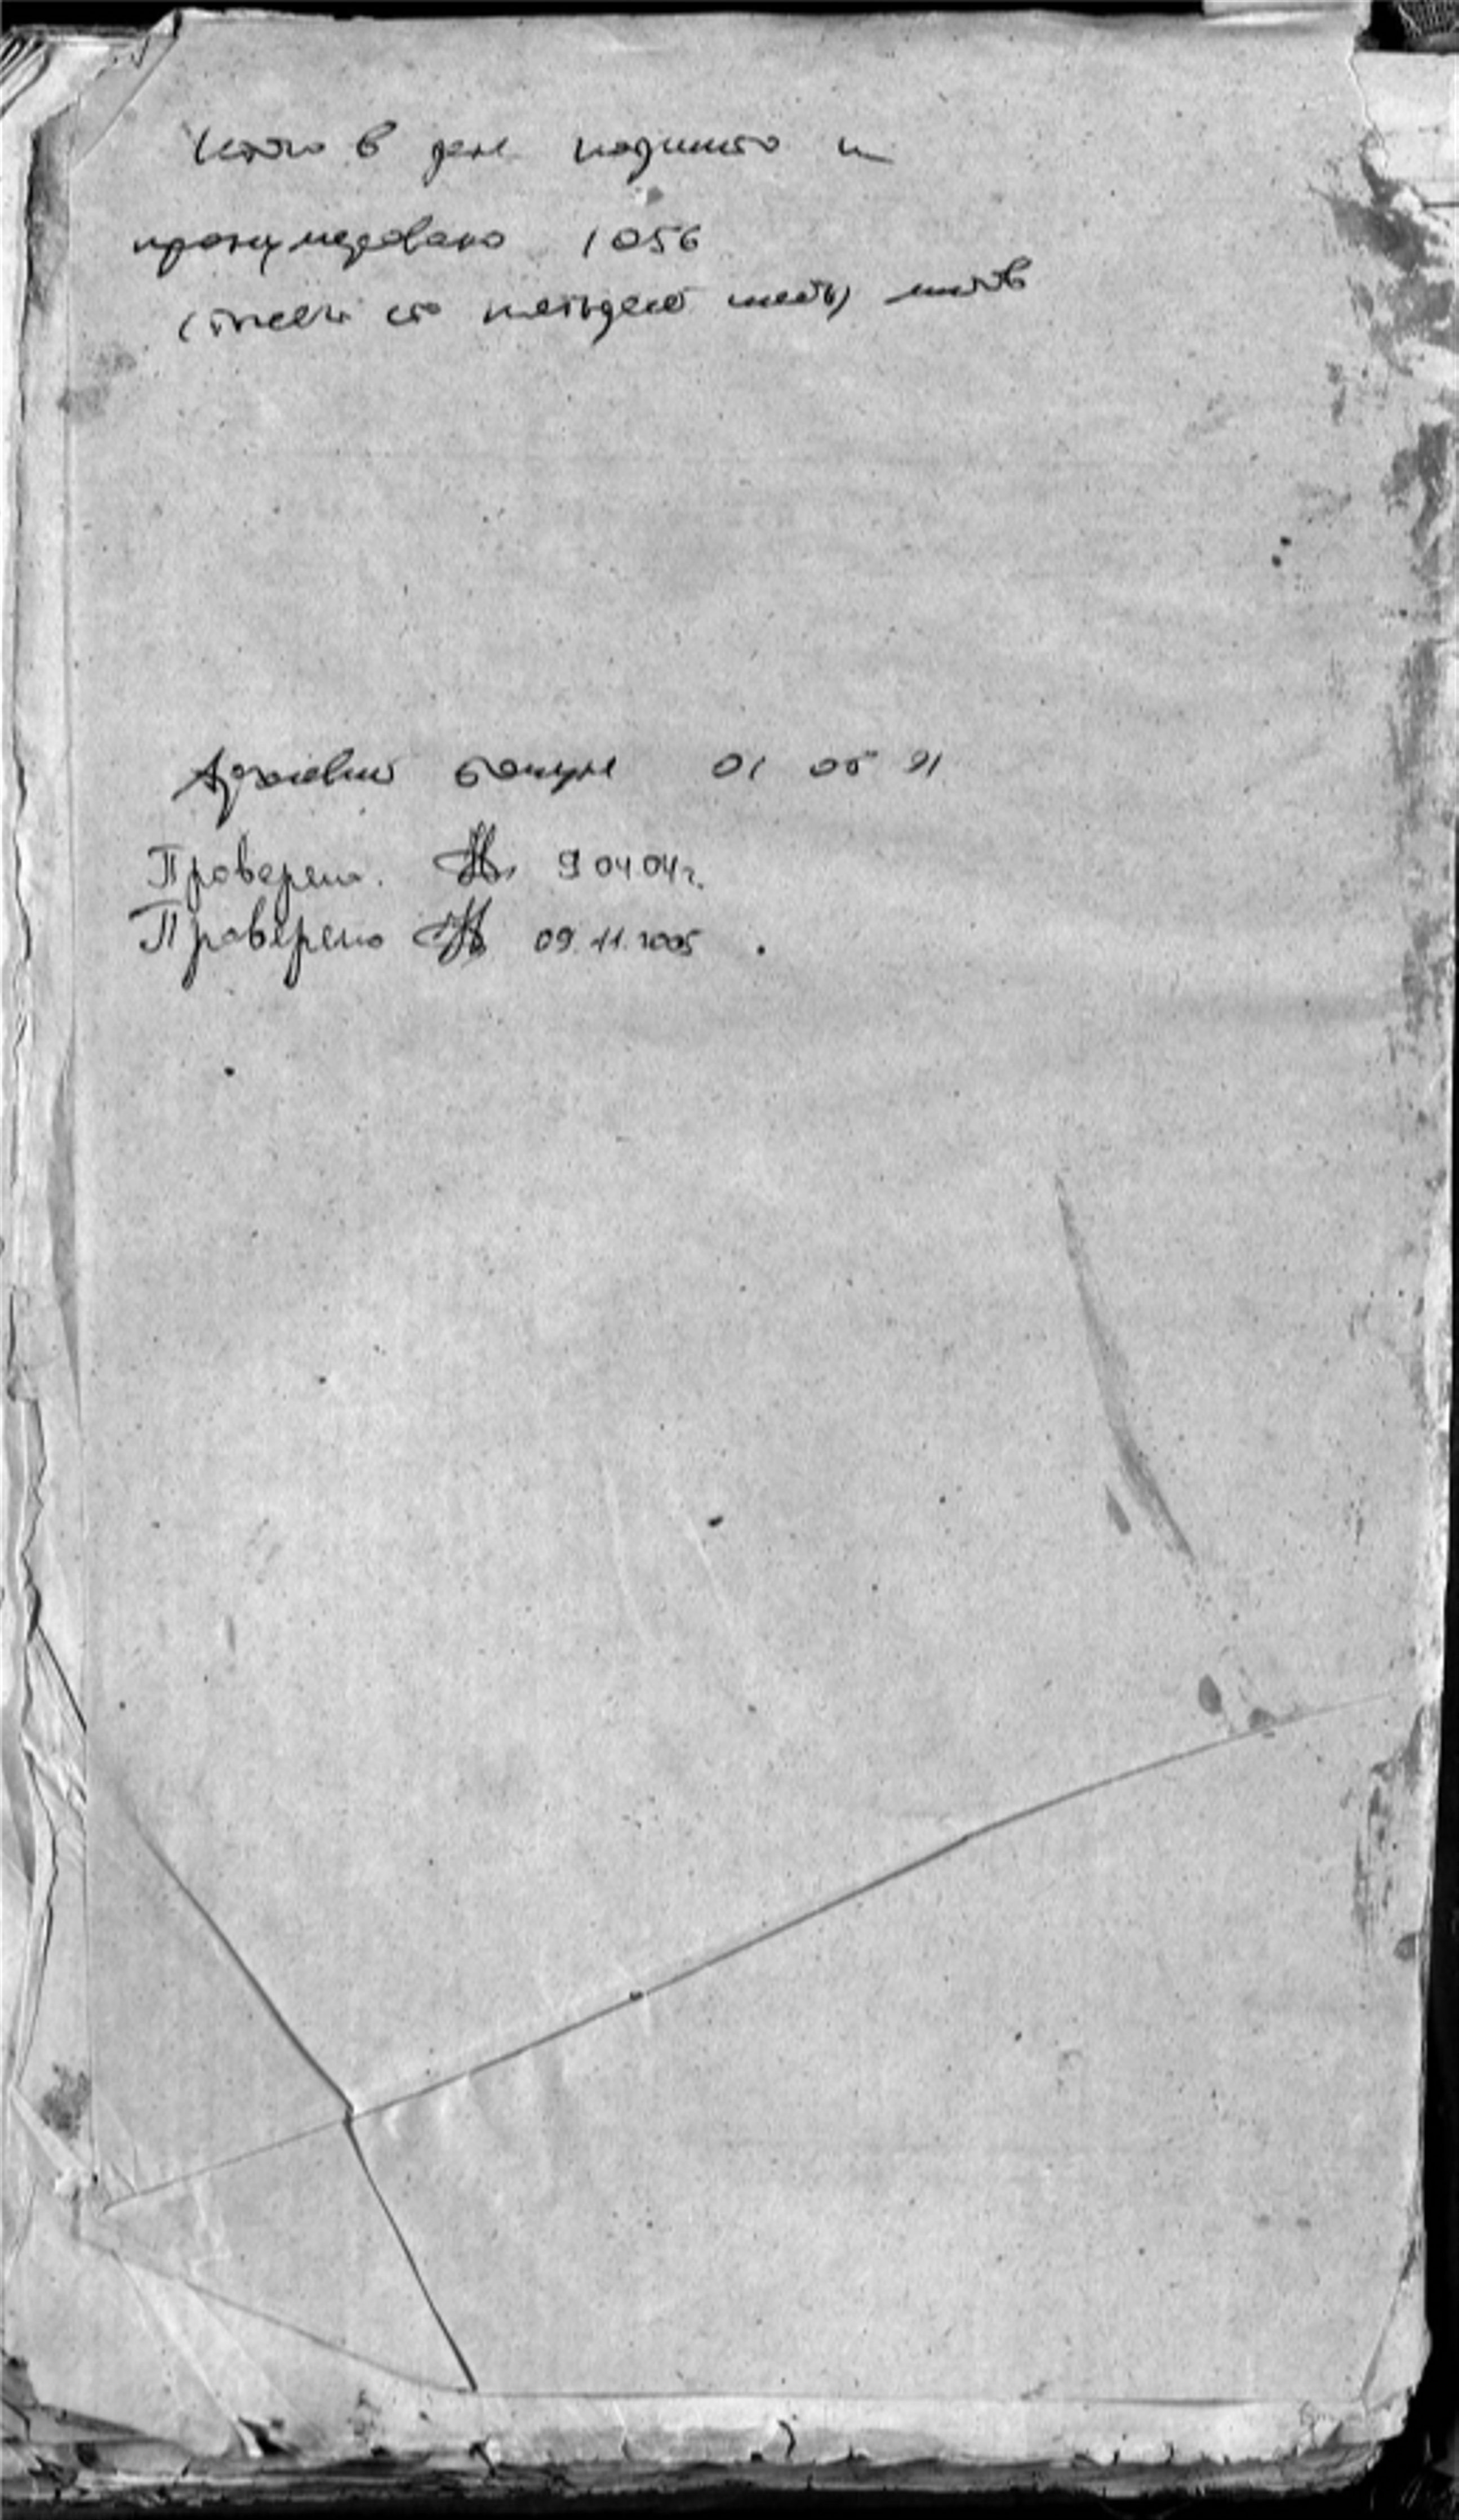 Итого в деле подшито и
пронумеровано 1056
(тысяча пятьдесят шесть) листов
01 05 91
Проверено. 9 04 04г.
Проверено 09.11.2005